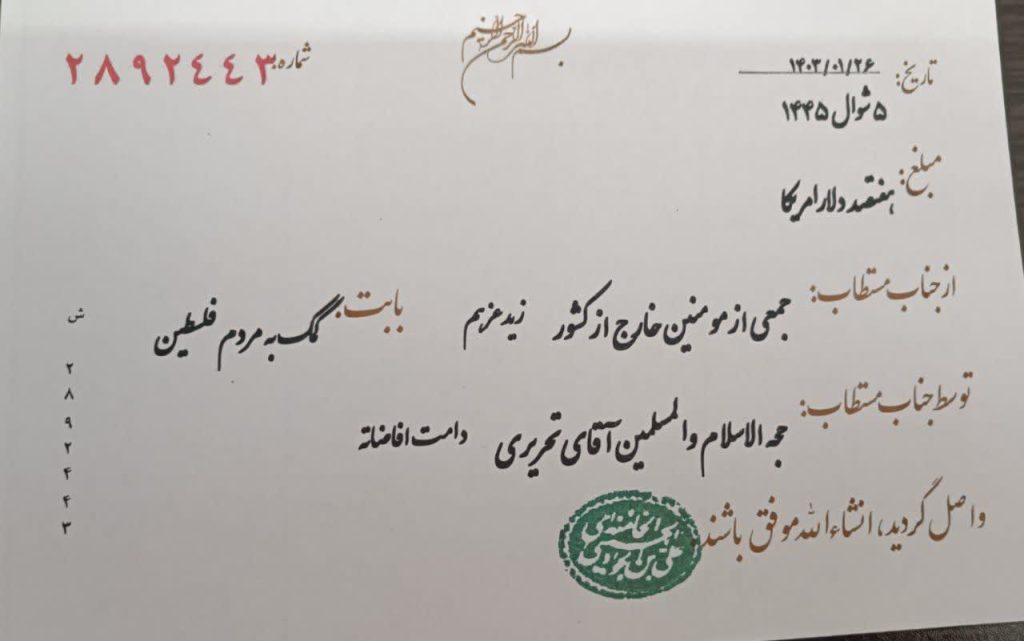 بسم الله الرحمن الرحیم
تاریخ: ۱۴۰۳/۰۱/۲۶
شماره: ۲۸۹۲۴۴۳
۵ شوال ۱۴۴۵
مبلغ: هفتصد دلار امریکا
از جناب مستطاب: جمعی از مومنین خارج از کشور زید عزهم بابت: کمک به مردم فلسطین
توسط جناب مستطاب: حجه الاسلام والمسلمین آقای تحریری دامت افاضاته
واصل گردید، انشاءالله موفق باشند.
ش
۲
۸
۹
۲
۴
۴
۳